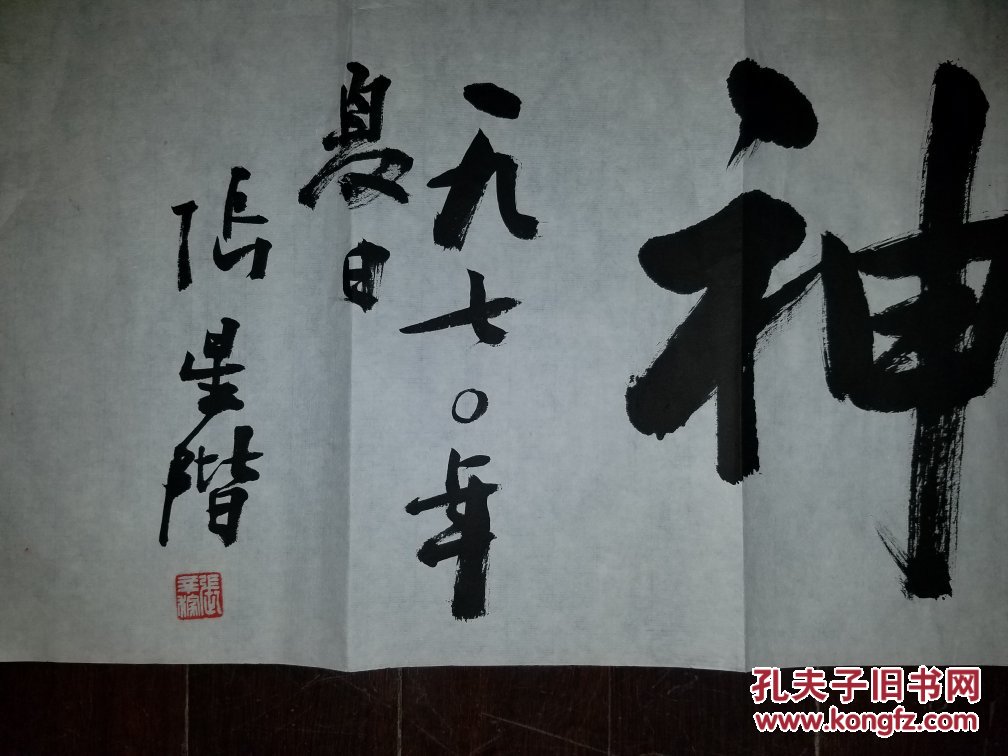 神
一九七〇年
夏日
张星階
孔夫子旧书网
www.kongfz.com